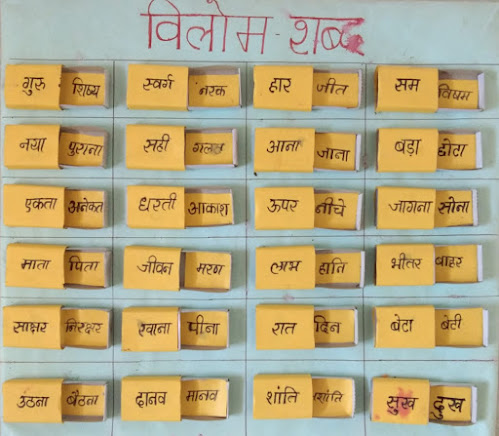 विलोम-शब्द
गुरु शिष्य स्वर्ग नरक हार जीत सम विषम
नया पुराना सही गलत आना जाना बड़ा छोटा
एकता अनेकता धरती आकाश ऊपर नीचे जागना सोना
माता पिता जीवन मरण लाभ हानि भीतर बाहर
साक्षर निरक्षर खाना पीना रात दिन बेटा बेटी
उठना बैठना दानव मानव शांति सुख दुख